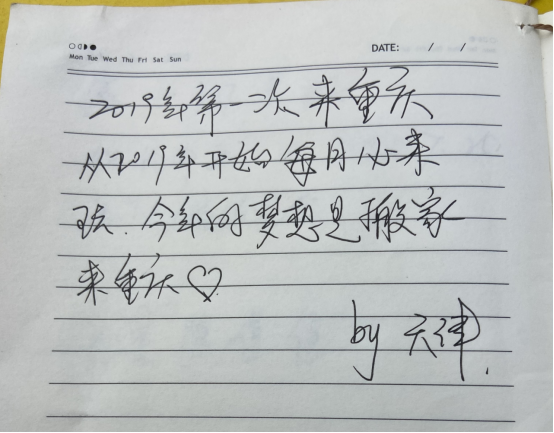 Mon Tue Wed Thu Fri Sat Sun
DATE: / /
2019年第一次来重庆
从2019年开始每月必来
玩.今年的梦想是搬家
来重庆♡
by 天津.